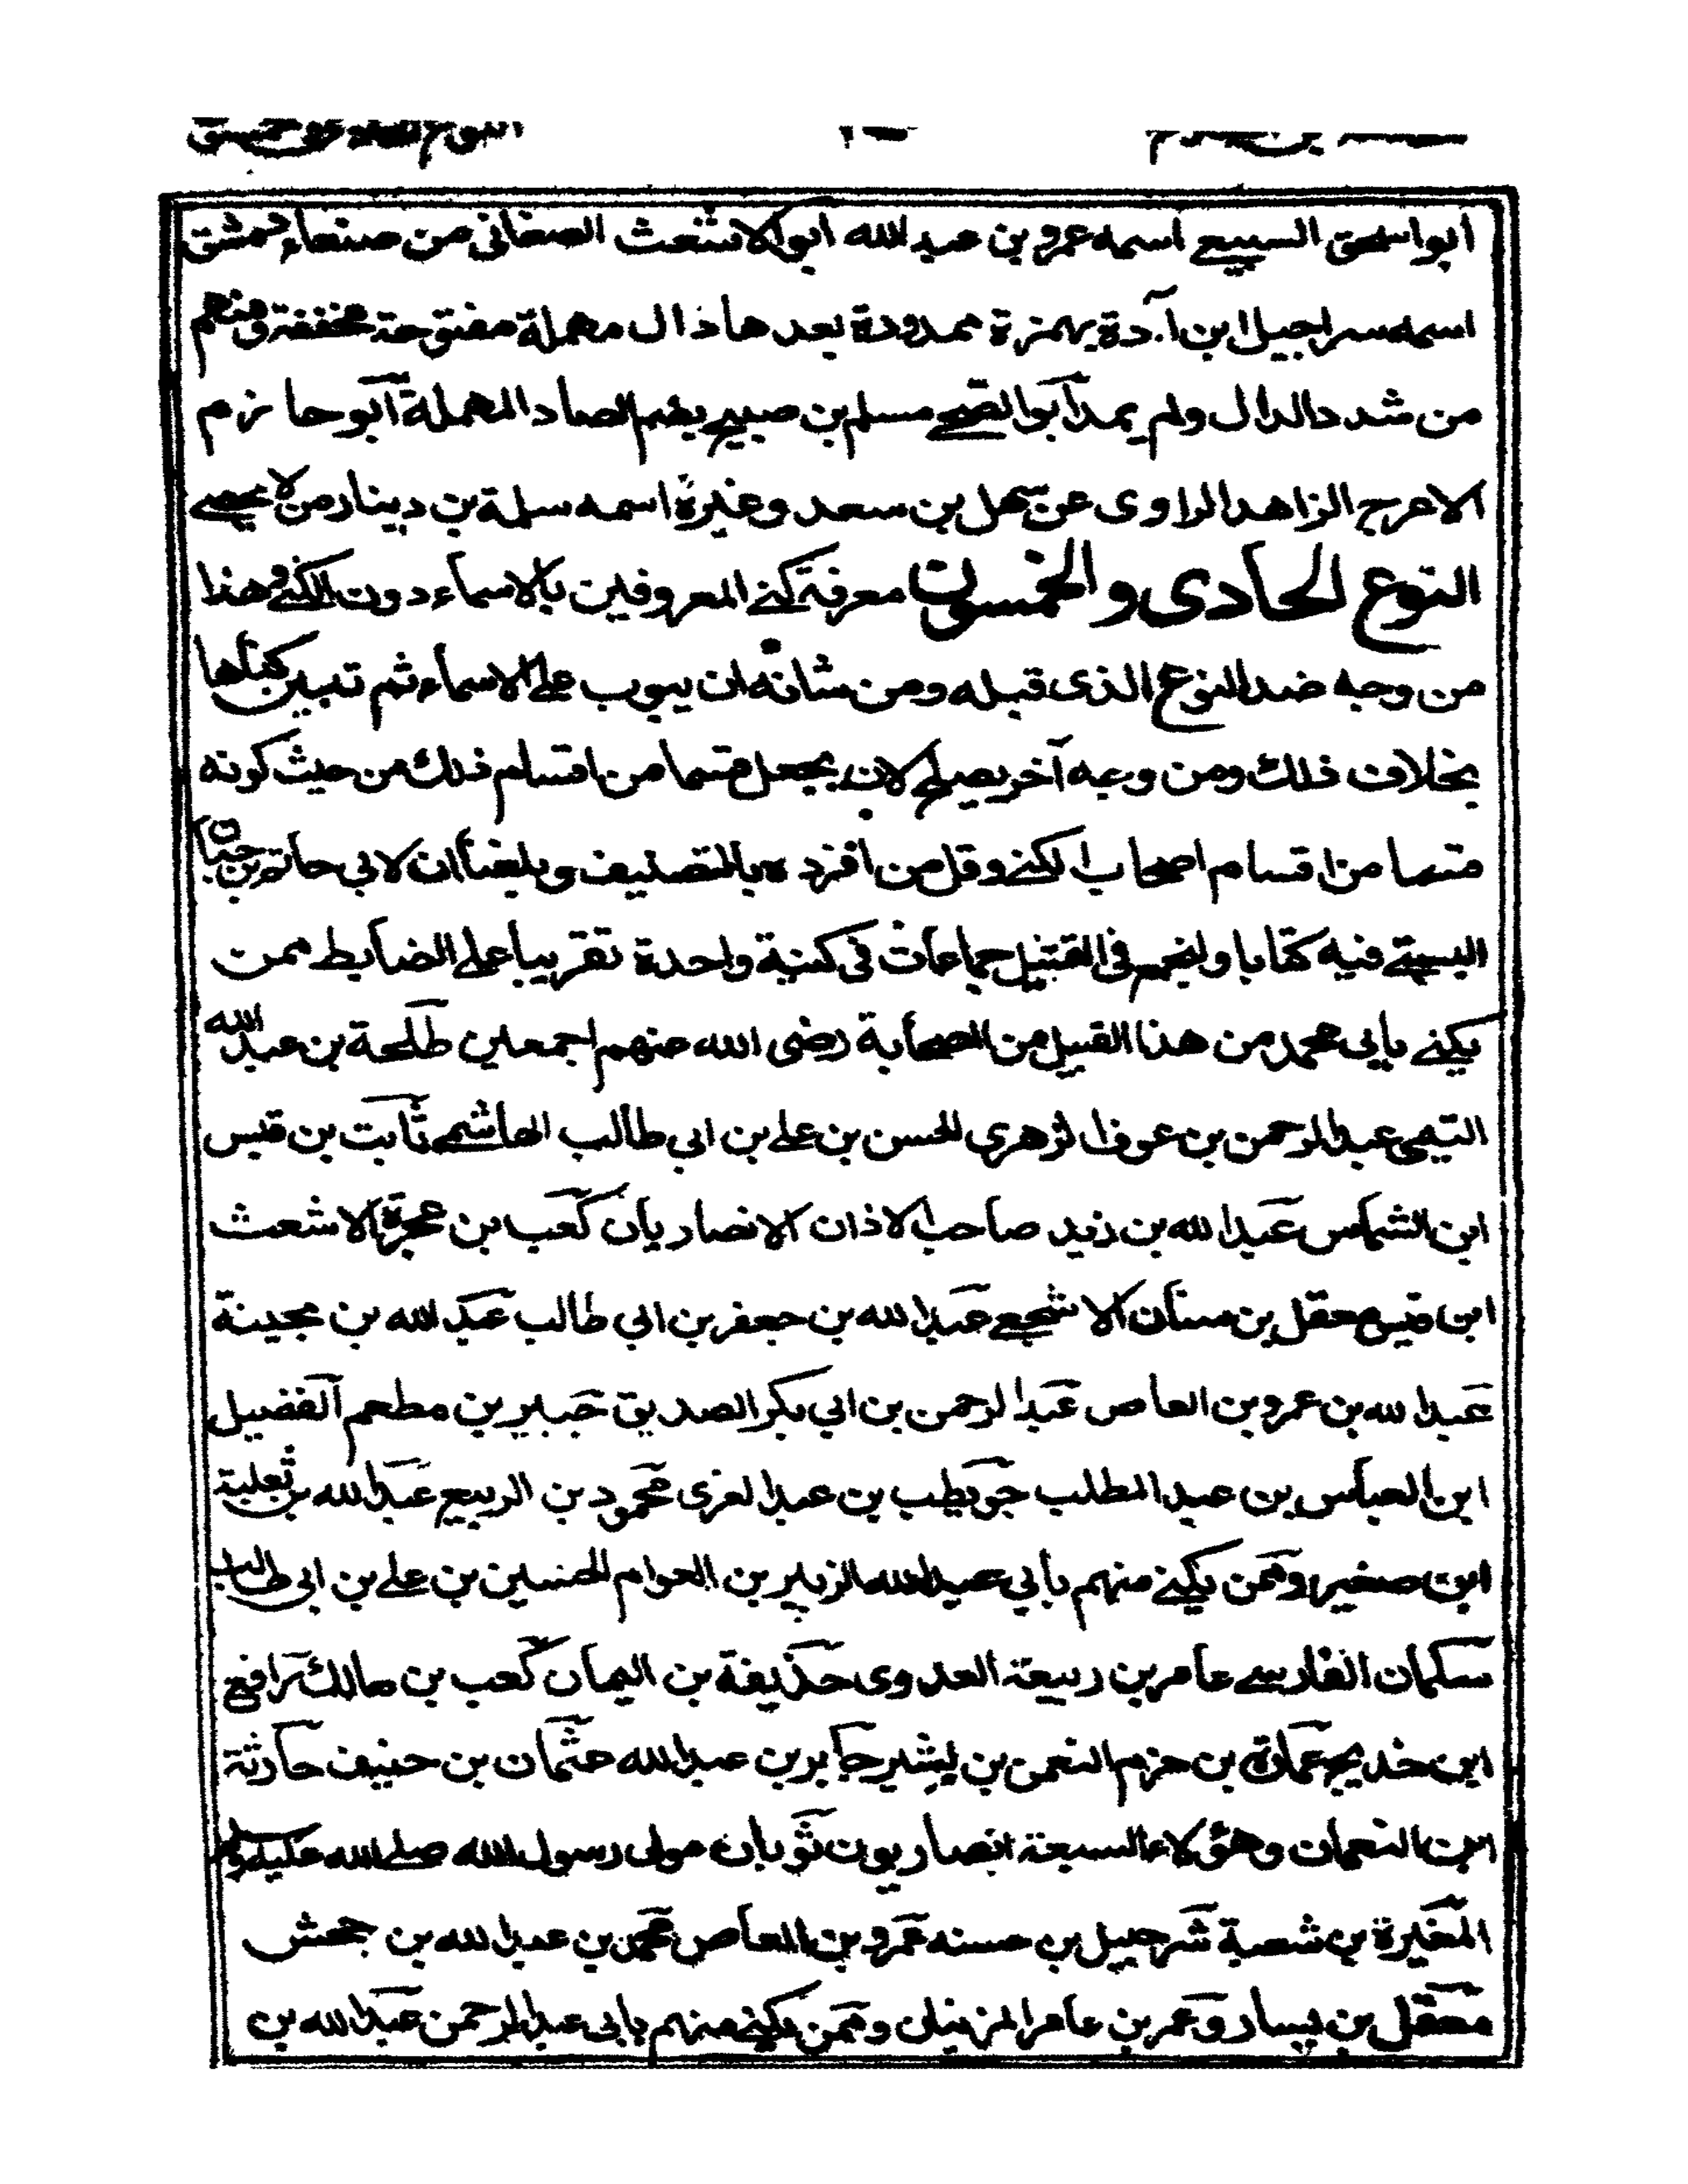 أبو اسحق السبيعي اسمه عمرو بن عبد الله أبو الاشعث الصغانى من صنعاء دمشق
اسمه سراجيل ابن آدة بهمزة ممدودة بعدها دال مهملة مفتوحة مخففة ومنهم
من شدد الدال ولم يمد أبو الضحے مسلم بن صبيح بضم الصاد المهملة أبو حازم
الاعرج الزاهد الراوى عن سهل بن سعد وغيره اسمه سلمة بن دينار من لا يحصے
النوع الحادى والخمسون معرفة كنے المعروفين بالاسماء دون الكنے وهذا
من وجه ضد النوع الذى قبله ومن شانه ان يبوب علے الاسماء ثم تبين كناها
بخلاف ذلك ومن وجه آخر يصلح لان يجعل قسما من اقسام ذلك من حيث كونه
قسما من اقسام اصحاب الكنے وقل من افرده بالتصنيف وبلغنا ان لابي حاتم بن حبان
البستے فيه كتابا ولنجمع فى التمثيل جماعات فى كنية واحدة تقريبا على الضابط ممن
يكنے بأبى محمد من هذا القبيل من الصحابة رضى الله عنهم اجمعين طلحة بن عبد الله
التيمى عبد الرحمن بن عوف الزهرى الحسن بن علے بن ابي طالب الهاشمے ثابت بن قيس
ابن الشماس عبد الله بن زيد صاحب الاذان الانصاريان كعب بن عجرة الاشعث
ابن قيس معقل بن سنان الاشجعے عبد الله بن جعفر بن ابي طالب عبد الله بن بحينة
عبد الله بن عمرو بن العاص عبد الرحمن بن ابي بكر الصديق جبير بن مطعم الفضيل
ابن العباس بن عبد المطلب حويطب بن عبد العزى محمود بن الربيع عبد الله بن ثعلبة
ابن صغير وممن يكنے منهم بأبي عبد الله الزبير بن العوام الحسين بن علے بن ابى طالب
سلمان الفارسے عامر بن ربيعة العدوى حذيفة بن اليمان كعب بن مالك رافع
ابن خديج عمارة بن حزم النعمن بن بشير جابر بن عبد الله عثمان بن حنيف حارثة
ابن النعمان وهؤلاء السبعة انصاريون ثوبان مولى رسول الله صلے الله عليه وسلم
المغيرة بن شعبة شرحبيل بن حسنه عمرو بن العاص محمد بن عبد الله بن جحش
معقل بن يسار وعمر بن عامر المزنيان وممن يكنے منهم بابى عبد الرحمن عبد الله بن